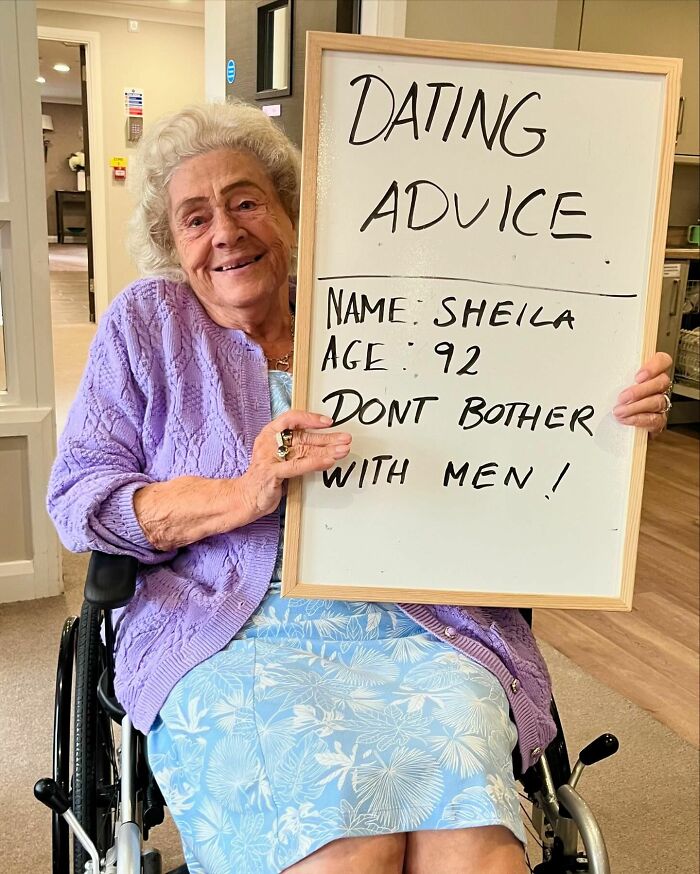 DATING
ADVICE.
NAME: SHEILA
AGE: 92
DONT BOTHER
WITH MEN!